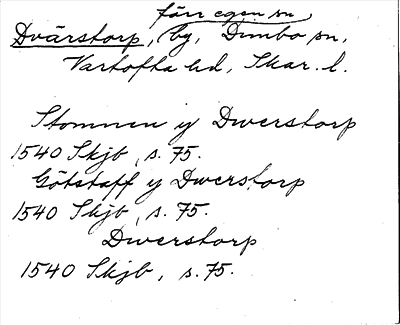 förr egen sn
Dvärstorp, by, Dimbo sn,
Vartofta hd, Skar. l.
Stommen y Dwerstorp
1540 Skjb, s. 75.
Götstaff y Dwerstorp
1540 Skjb, s. 75.
Dwerstorp
1540 Skjb, s. 75.